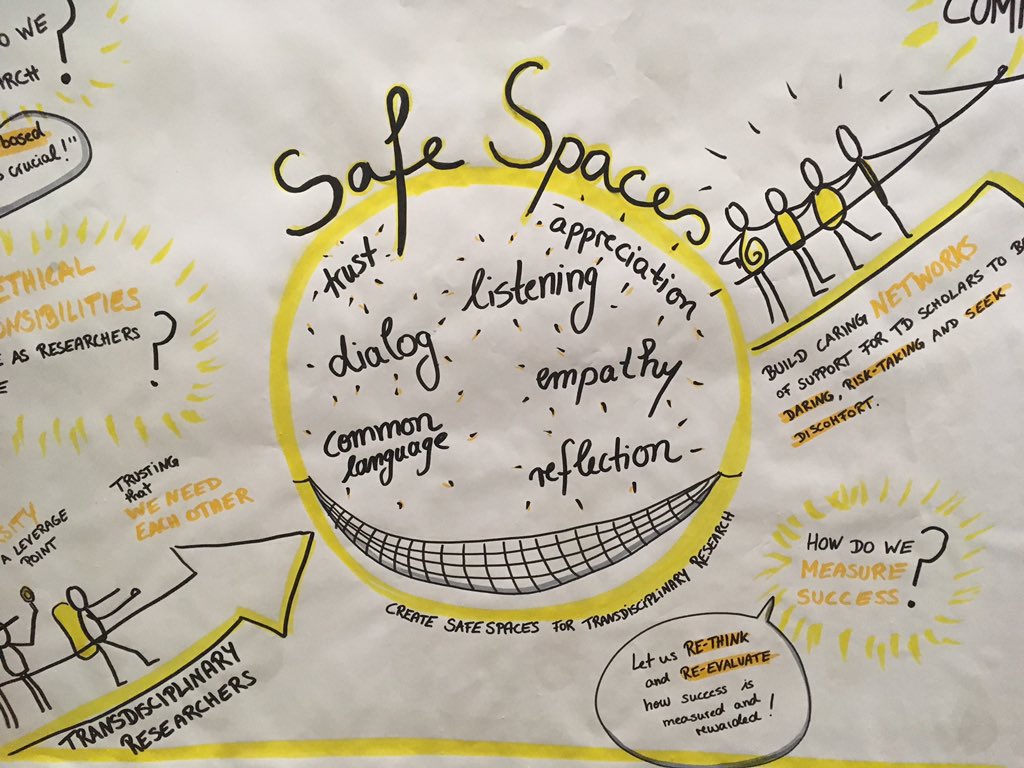 O WE
ARCH ?
based
s crucial!"
COM
Safe Spaces
trust
appreciation
listening
dialog
empathy
common
language
reflection
CREATE SAFE SPACES FOR TRANSDISCIPLINARY RESEARCH
ETHICAL
ONSIBILITIES
E AS RESEARCHERS
E ?
TRUSTING
that
WE NEED
EACH OTHER
SITY
A LEVERAGE
POINT
TRANSDISCIPLINARY
RESEARCHERS
BUILD CARING NETWORKS
OF SUPPORT FOR TD SCHOLARS TO B
DARING, RISK-TAKING AND SEEK
DISCOMFORT.
HOW DO WE
MEASURE
SUCCESS ?
Let us RE-THINK
and RE-EVALUATE
how success is
measured and
rewarded!